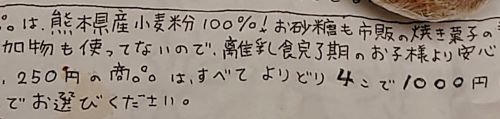 は、熊本県産小麦粉100%!お砂糖も市販の焼き菓子の
加物も使ってないので、離乳食完了期のお子様より安心
250円の商。。は、すべてよりどり4こで1000円
でお選びください。